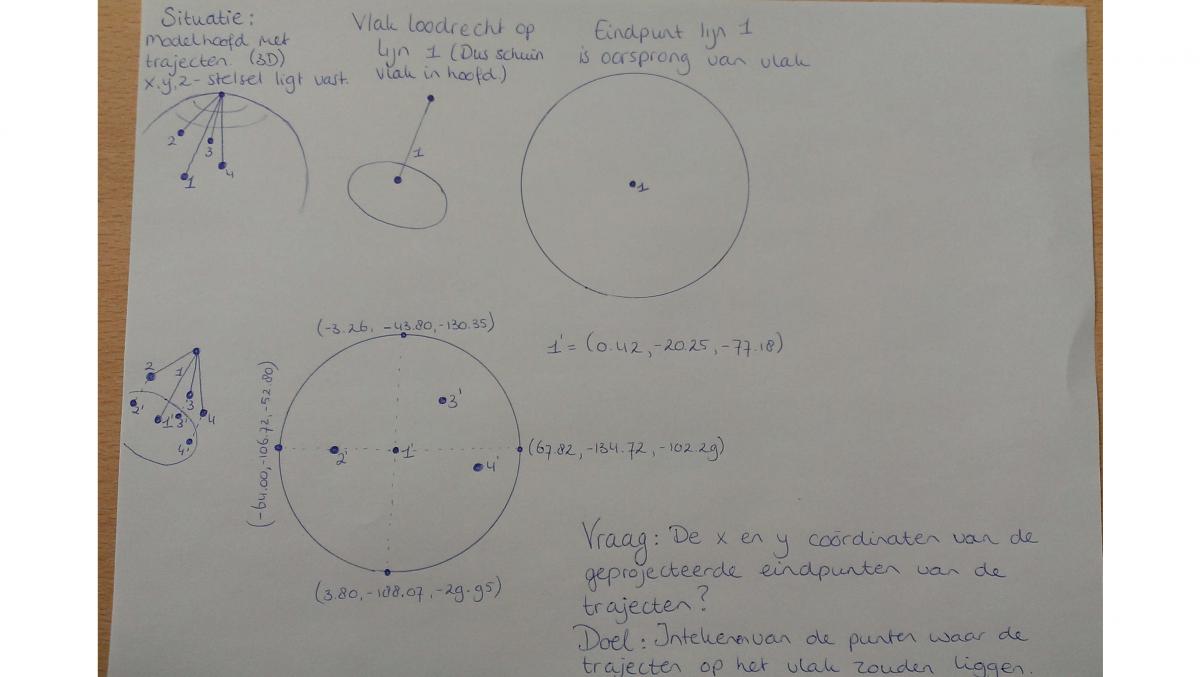 Situatie:
Modelhoofd met
trajecten. (3D)
x,y,z-stelsel ligt vast.
2
3
1
4
Vlak loodrecht op
lijn 1 (Dus schuin
vlak in hoofd.)
1
Eindpunt lijn 1
is oorsprong van vlak
1
2
1
3
4
2'
1'
3'
4'
(-3.26, -43.80, -130.35)
(-64.00, -106.72, -52.80)
3'
2'
1'
4'
(67.82, -134.72, -102.29)
(3.80, -188.07, -29.95)
1' = (0.42, -20.25, -77.18)
Vraag: De x en y coördinaten van de
geprojecteerde eindpunten van de
trajecten?
Doel: Intekenen van de punten waar de
trajecten op het vlak zouden liggen.